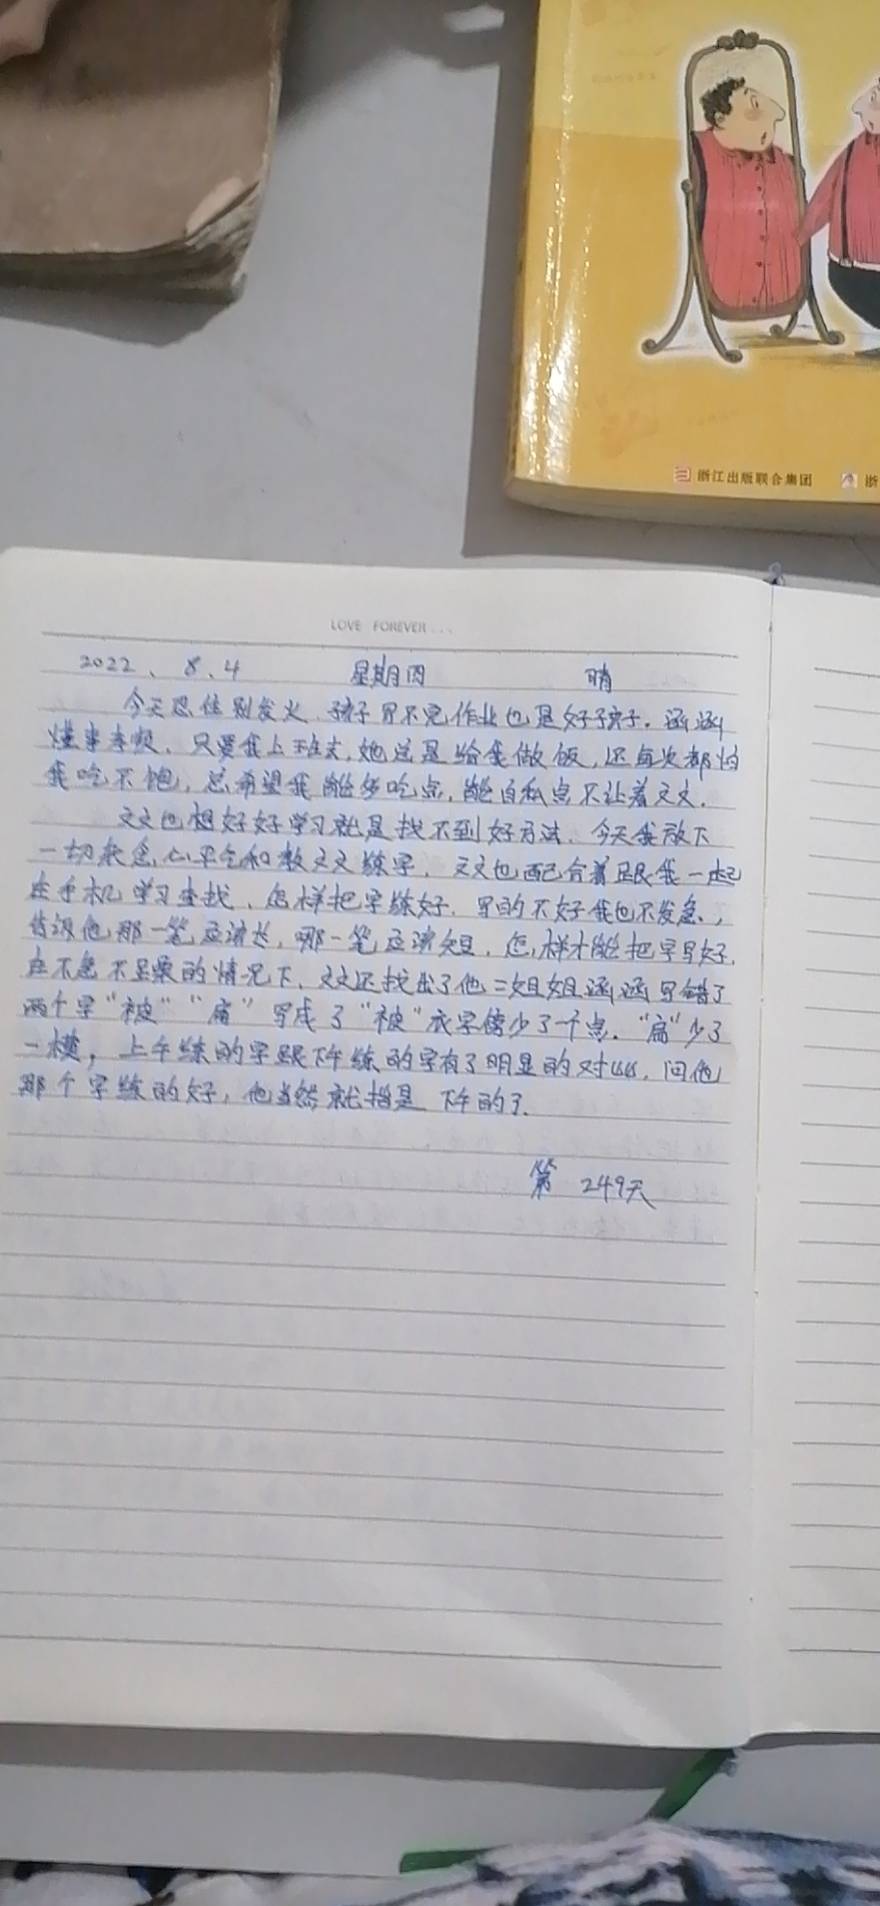 浙江出版联合集团
浙
LOVE FOREVER...
2022、8、4 星期四 晴
今天忍住别发火、孩子写不完作业也是好孩子。涵涵
懂事孝顺、只要我上班去,她总是给我做饭,还每次都怕
我吃不饱,总希望我能多吃点,能自私点不让着文文.
文文也想好好学习就是找不到好方法、今天我放下
一切着急,心平气和教文文练字,文文也配合着跟我一起
在手机学习查找、怎样把字练好.写的不好我也不发急,
告诉他那一笔应该长,哪一笔应该短、怎样才能把字写好.
在不急不显燥的情况下、文文还找出了他二姐姐涵涵写错了
两个字“被”“扇”写成了“被”衣字傍少了一个点.“扇”少了
一横,上午练的字跟下午练的字有了明显的对比.问他
那个字练的好,他当然就指是下午的了.
第249天